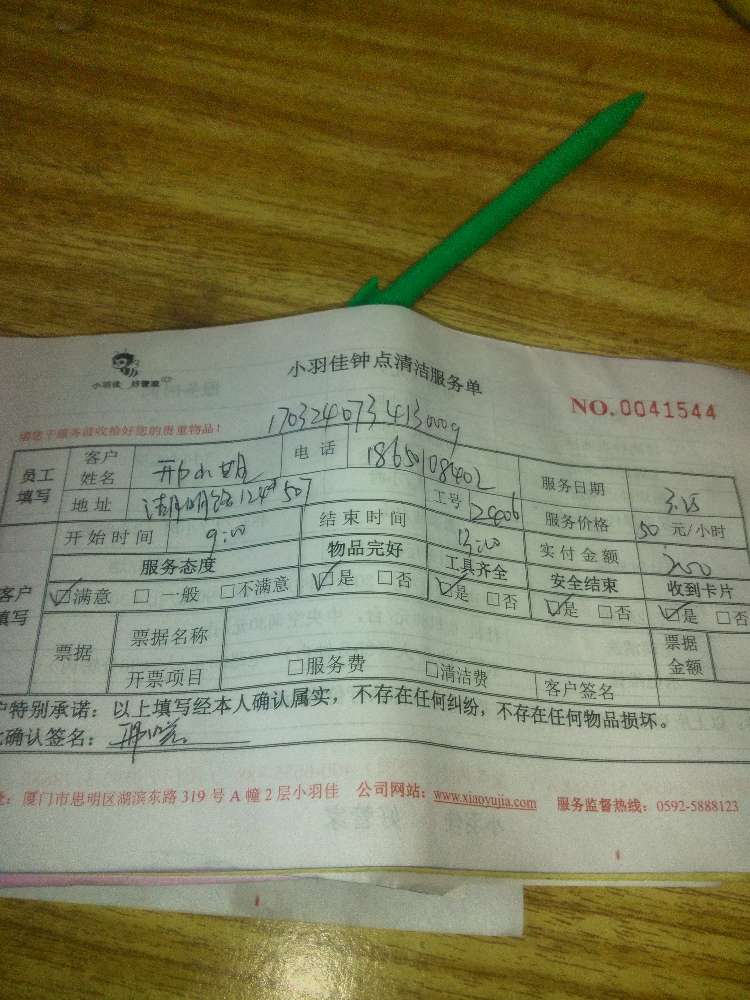 小羽佳 好管家
小羽佳钟点清洁服务单
NO.0041544
请您于服务前收拾好您的贵重物品!
1703240734130009
员工填写 客户姓名 电话 18650108402 服务日期 3.25
地址 124 507 工号 2406 服务价格 50 元/小时
开始时间 9:00 结束时间 13:00 实付金额 200
客户填写 服务态度 物品完好 工具齐全 安全结束 收到卡片
☑满意 □一般 □不满意 ☑是 □否 ☑是 □否 ☑是 □否 ☑是 □否
票据 票据名称 票据金额
开票项目 □服务费 □清洁费 客户签名
户特别承诺:以上填写经本人确认属实,不存在任何纠纷,不存在任何物品损坏。
确认签名:
厦门市思明区湖滨东路 319 号 A 幢 2 层小羽佳 公司网站:www.xiaoyujia.com 服务监督热线:0592-5888123